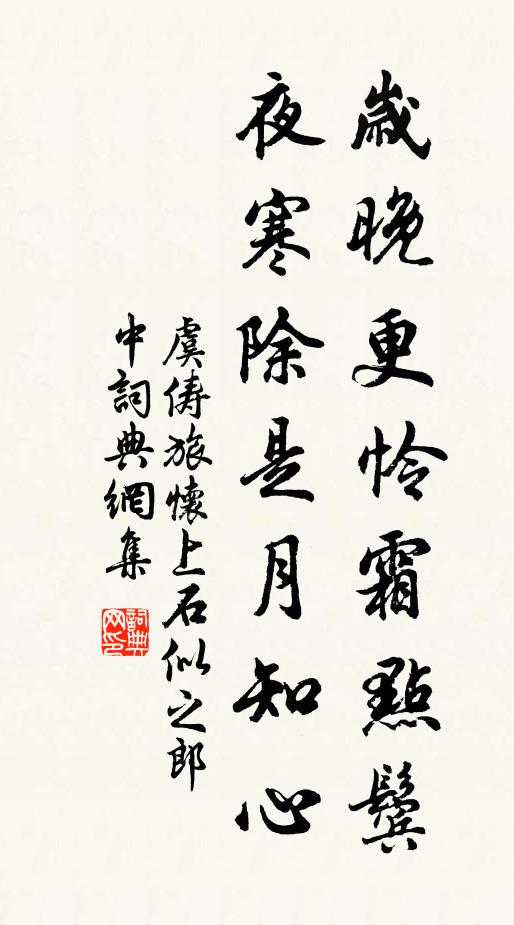 歲晚更怜霜點鬓
夜寒除是月知心
虞俦旅懷上石似之郎
中詞典網集
詞典网印